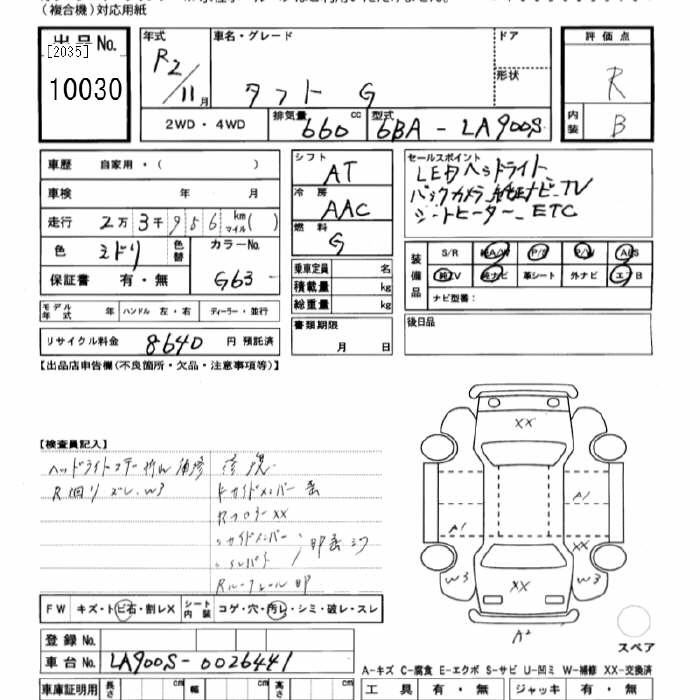 （複合機）対応用紙
出品No.
[2035]
10030
年式
R2/11月
車名・グレード
タフト G
ドア
形状
2WD・4WD
排気量 660 cc
型式 6BA-LA900S
評価点
R
内装
B
車歴 自家用・( )
車検 年 月
走行 2万3千956 km マイル( )
色 ミドリ
色替
カラーNo. G63
保証書 有・無
モデル年式 年
ハンドル 左・右
ディーラー・並行
リサイクル料金 8640 円 預託済
シフト
AT
冷房
AAC
燃料
G
乗車定員 名
積載量 kg
総重量 kg
書類期限
月 日
セールスポイント
LEDヘッドライト
バックカメラ 純正ナビ TV
シートヒーター ETC
装備品
S/R 純A/W P/S P/W ABS
純TV 純ナビ 革シート 外ナビ エアB
ナビ型番:
後日品
【出品店申告欄(不良箇所・欠品・注意事項等)】
【検査員記入】
ヘッドライトステー 補修
R回り ズレ W3
修復
XX
XX
A1
A1
XX
W3
W3
XX
A2
FW キズ・トビ石・割レX
シート内装 コゲ・穴・汚レ・シミ・破レ・スレ
スペア
登録No.
車台No. LA900S-0026441
A-キズ C-腐食 E-エクボ S-サビ U-凹ミ W-補修 XX-交換済
車庫証明用 長さ cm 幅 cm 高さ cm
工具 有・無 ジャッキ 有・無